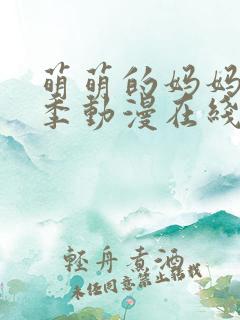 萌萌的妈妈
季動漫在綫
輕舟煮酒
未经同意禁止转载